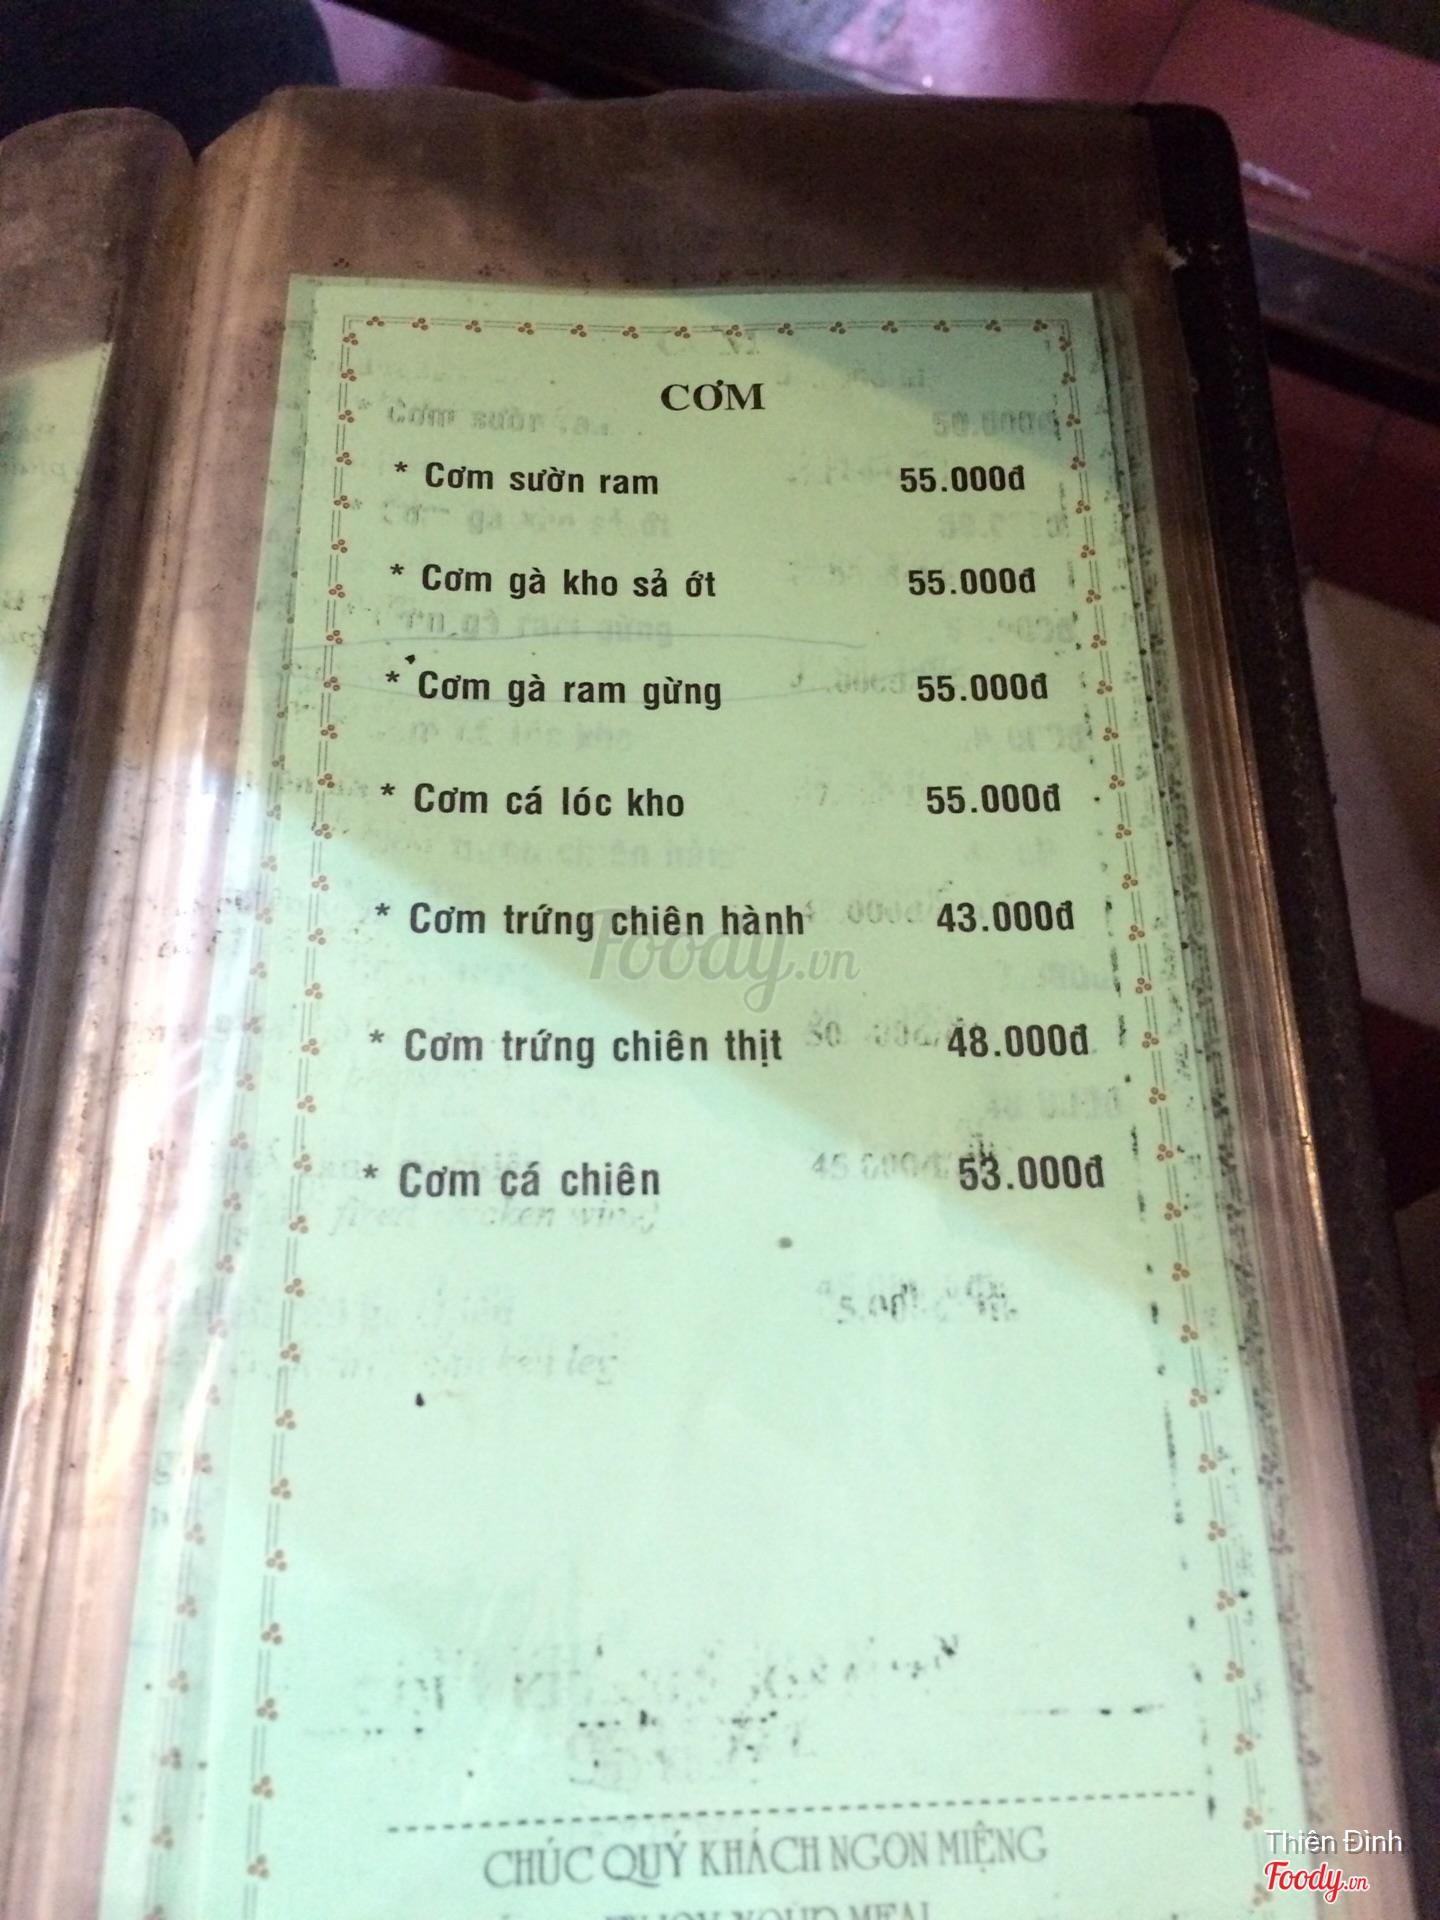 CƠM
* Cơm sườn ram 55.000đ
* Cơm gà kho sả ớt 55.000đ
* Cơm gà ram gừng 55.000đ
* Cơm cá lóc kho 55.000đ
* Cơm trứng chiên hành 43.000đ
Foody.vn
* Cơm trứng chiên thịt 48.000đ
* Cơm cá chiên 53.000đ
CHÚC QUÝ KHÁCH NGON MIỆNG
ENJOY YOUR MEAL
Thiên Đình
Foody.vn